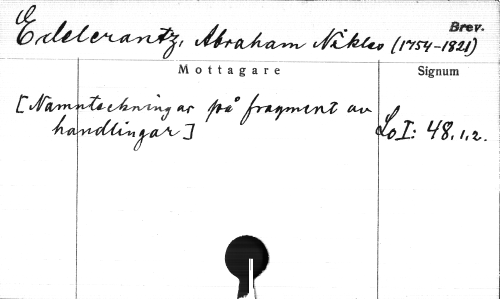 Brev.
Edelcrantz, Abraham Niklas (1754-1821)
Mottagare
Signum
[Namnteckningar på fragment av
handlingar]
LoI: 48,1,2.